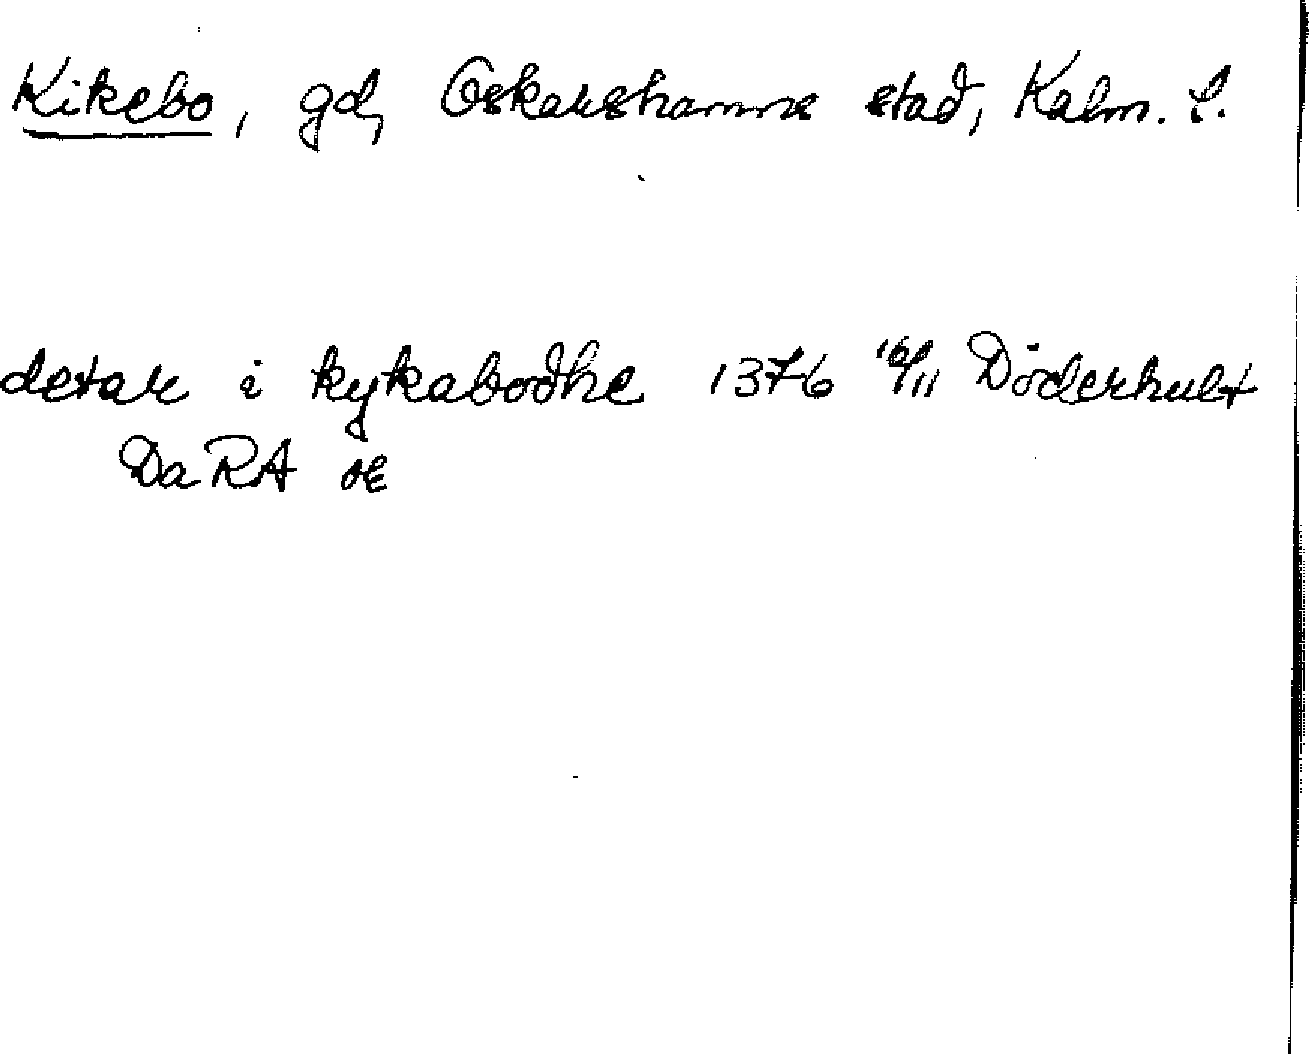 Kikebo, gd, Oskarshamns stad, Kalm. l.
detar i kykabodhe 1376 16/11 Döderhult
DaRA or